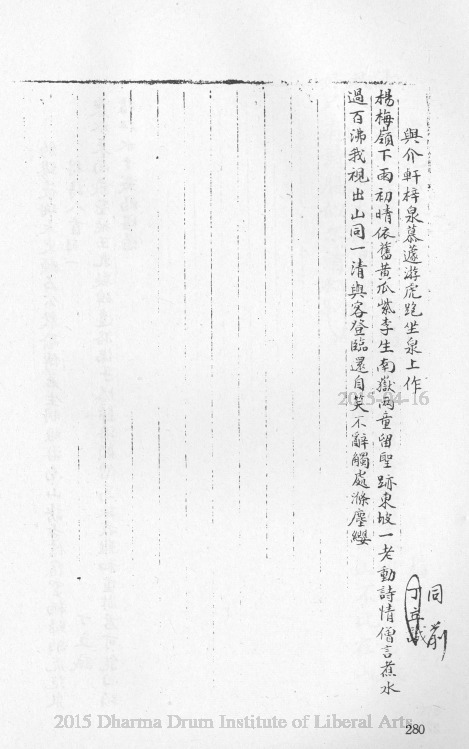 與介軒梓泉慕蘧游虎跑坐泉上作
同前
丁立誠
楊梅嶺下雨初晴依舊黃瓜紫李生南嶽兩童留聖跡東坡一老動詩情僧言舊水
過百沸我視出山同一清與客登臨還自笑不辭觸處滌塵纓
2015-04-16
2015 Dharma Drum Institute of Liberal Arts
280